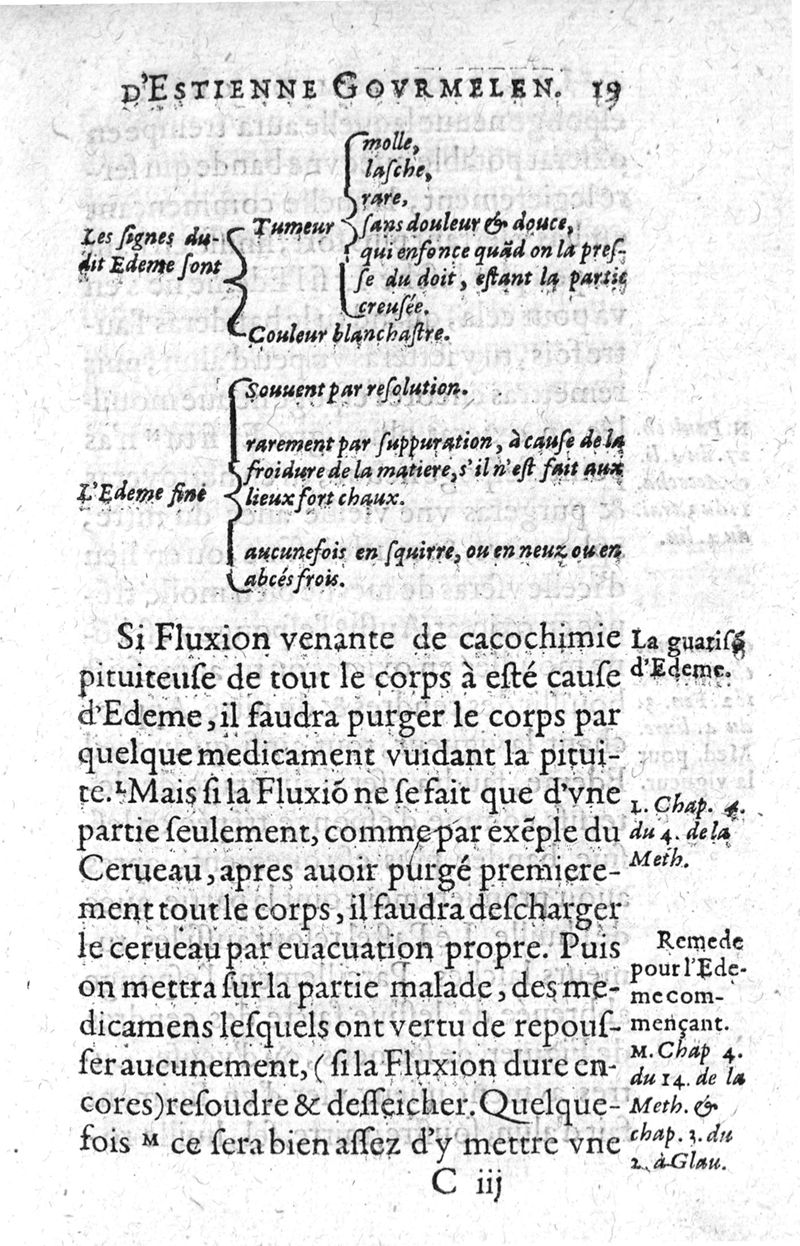 D'ESTIENNE GOVRMELEN. 19
Les ſignes du-
dit Edeme ſont
Tumeur
molle,
laſche,
rare,
ſans douleur & douce,
qui enfonce quãd on la preſ-
ſe du doit, eſtant la partie
creuſée.
Couleur blanchaſtre.
L'Edeme finé
Souuent par reſolution.
rarement par ſuppuration, à cauſe de la
froidure de la matiere, s'il n'eſt fait aux
lieux fort chaux.
aucunefois en ſquirre, ou en neuz ou en
abcés frois.
Si Fluxion venante de cacochimie
pituiteuse de tout le corps à eſté cauſe
d'Edeme, il faudra purger le corps par
quelque medicament vuidant la pitui-
te. L Mais ſi la Fluxiõ ne ſe fait que d'vne
partie ſeulement, comme par exẽple du
Cerueau, apres auoir purgé premiere-
ment tout le corps, il faudra deſcharger
le cerueau par euacuation propre. Puis
on mettra ſur la partie malade, des me-
dicamens leſquels ont vertu de repouſ-
ſer aucunement, (ſi la Fluxion dure en-
cores) reſoudre & deſſeicher. Quelque-
fois M ce ſera bien aſſez d'y mettre vne
La guariſõ
d'Edeme.
L. Chap. 4.
du 4. de la
Meth.
Remede
pour l'Ede-
me com-
mençant.
M. Chap 4.
du 14. de la
Meth. &
chap. 3. du
2. à Glau.
C iij